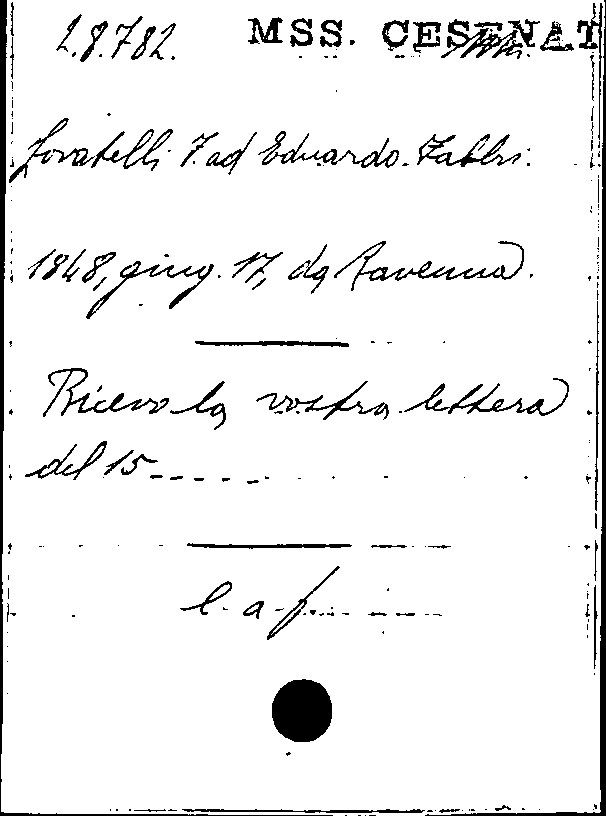 2.8.782. MSS. CESENAT
Lovatelli F. ad Eduardo Fabbri.
1848, giug. 17, da Ravenna.
Ricevo la vostra lettera
del 15-----
l. a. f.